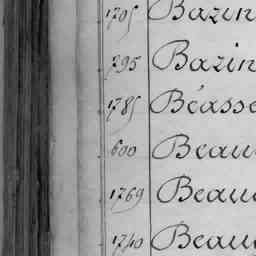 1705 Bazin
295 Bazin
1785 Béasse
600 Beau
1769 Beau
1740 Beau